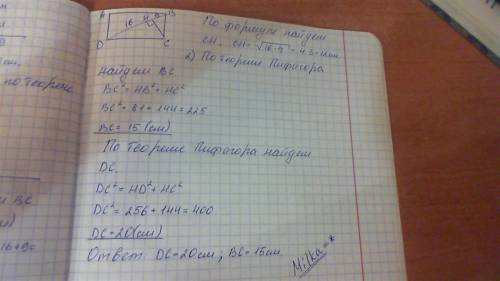 A 16 H 9 B
D C
По формуле найдем
CH. CH=√16·9 = 4·3=12см
2) По теореме Пифагора
найдем BC
BC²=HB²+HC²
BC²=81+144=225
BC=15(см)
По теореме Пифагора найдем
DC.
DC²=HD²+HC²
DC²=256+144=400
DC=20(см)
Ответ: DC=20см; BC=15см
Milka=*
по теореме
BC
16+9=